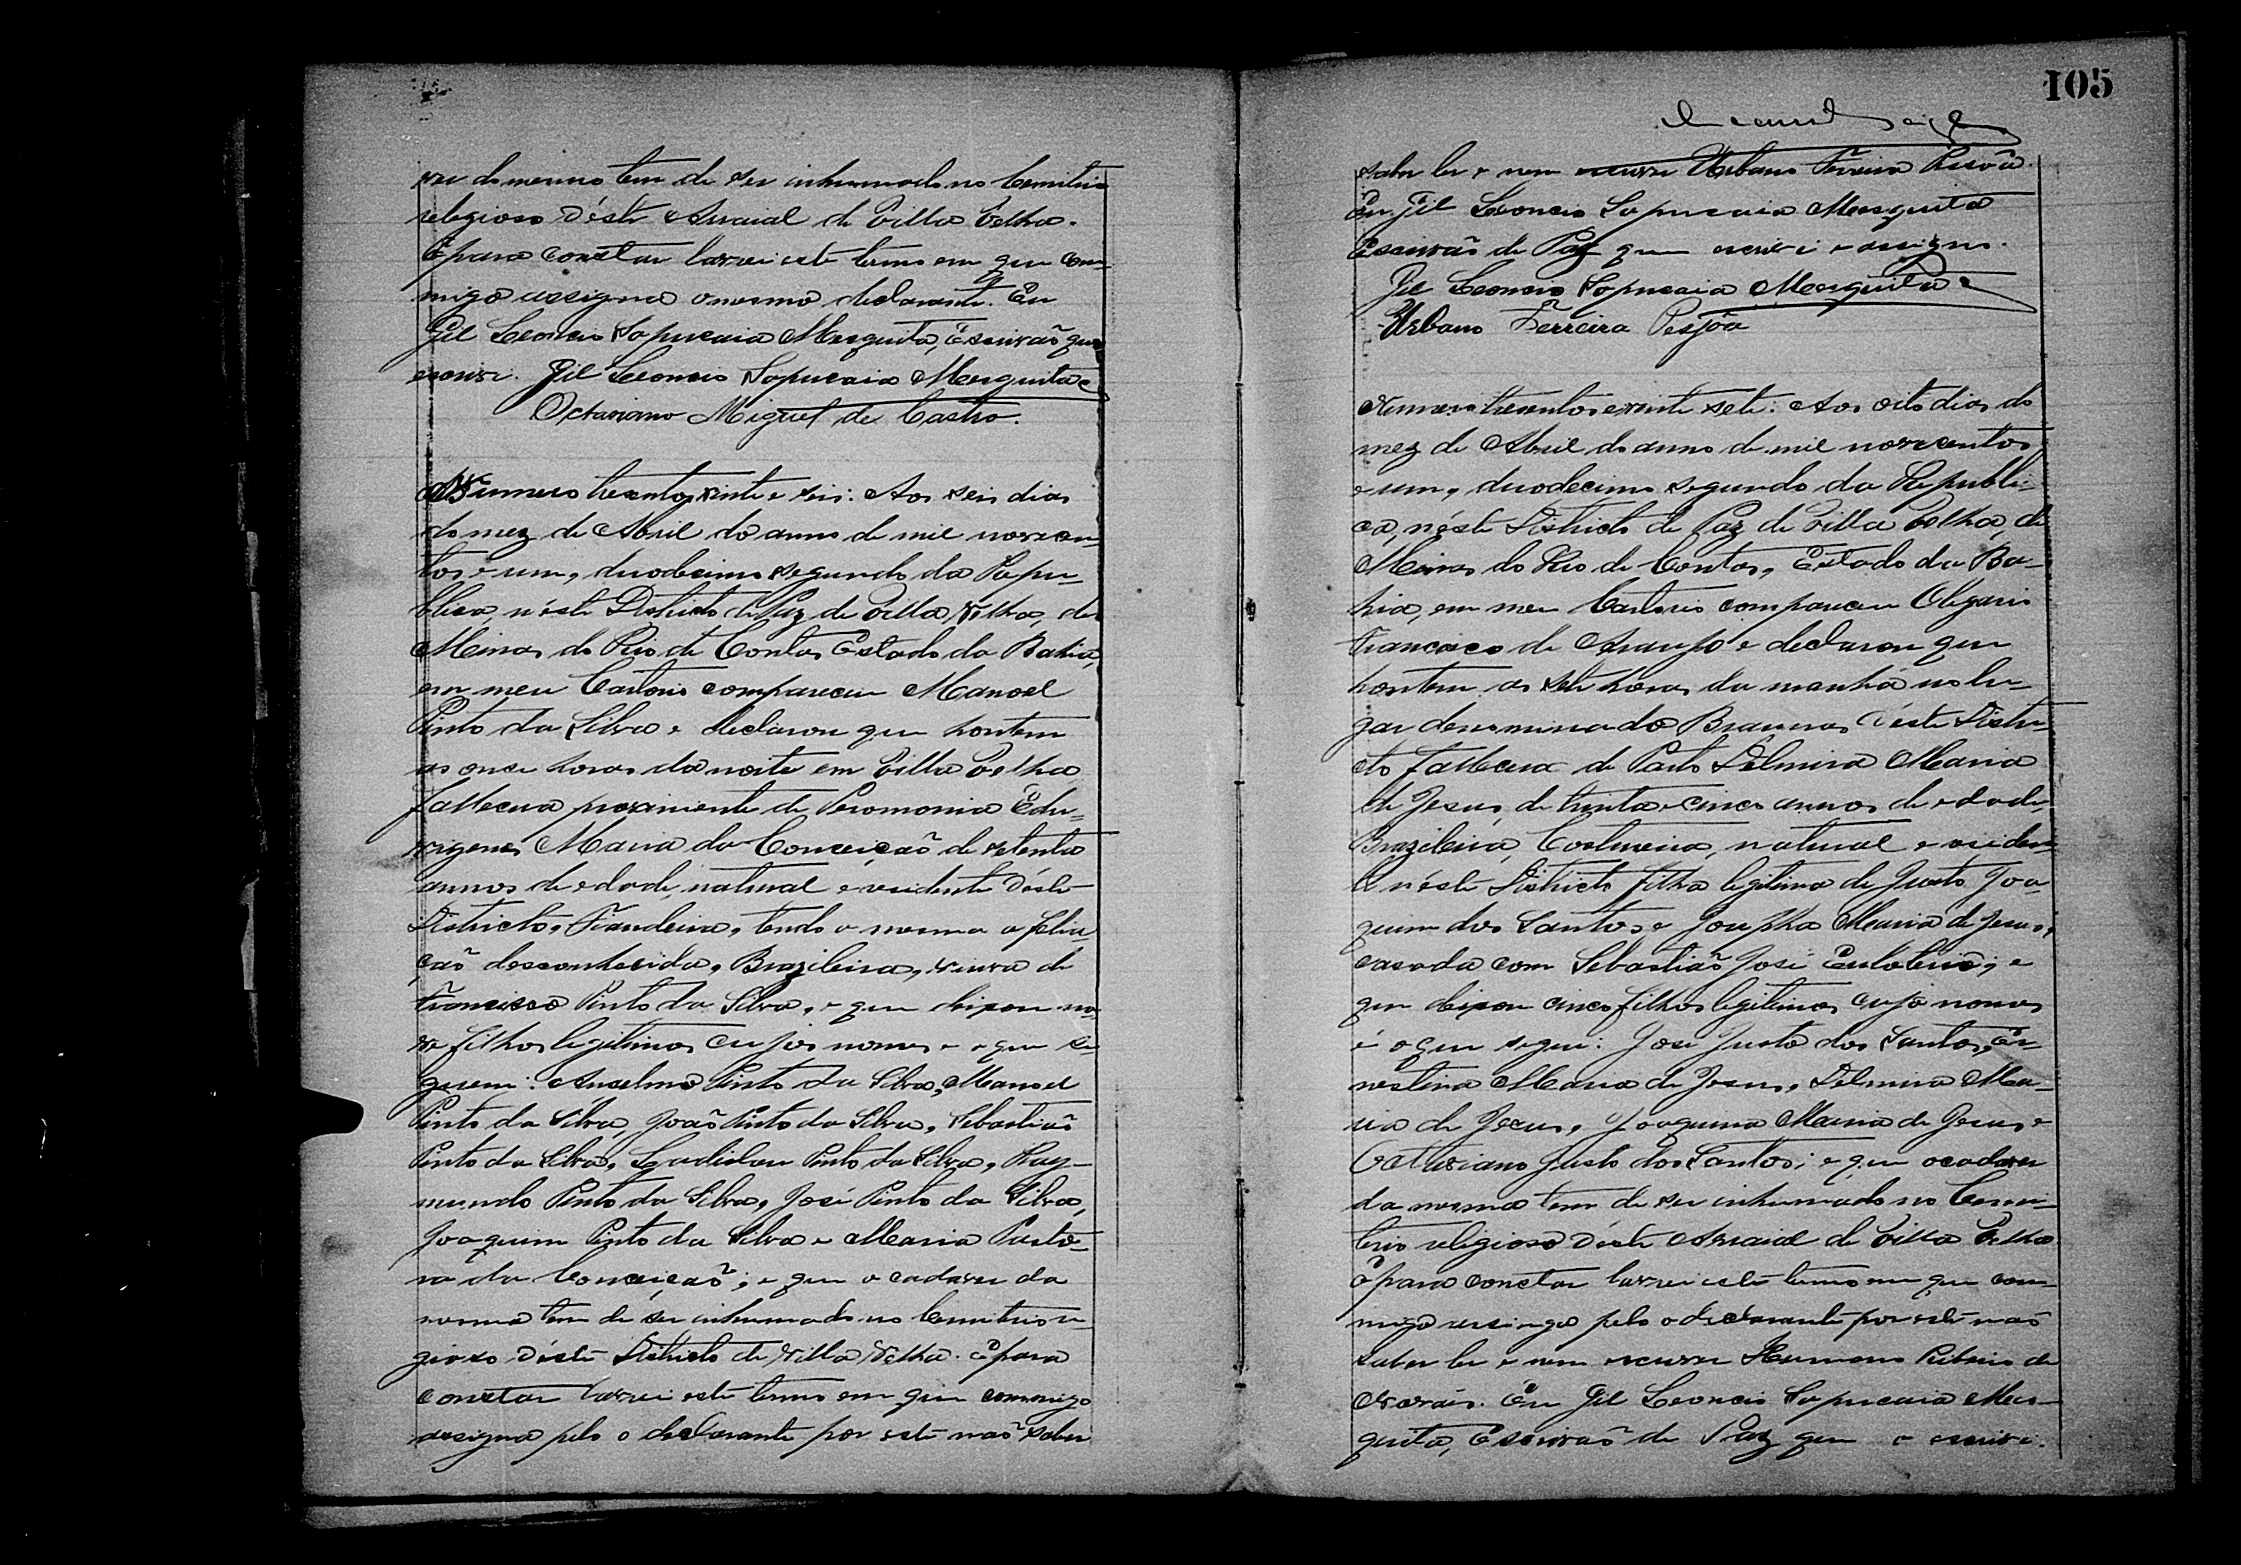 ver do mesmo tem de ser inhumado no Cemiterio
religioso déste Arraial de Villa Velha.
E para constar lavrei este termo em que com-
migo assigna o mesmo declarante. Eu
Gil Leoncio Sapucaia Mesquita, Escrivaõ que
escrevi. Gil Leoncio Sapucaia Mesquita
Octaviano Miguel de Castro.
Numero trezentos vinte e seis: Aos seis dias
do mez de Abril do anno de mil novecen-
tos e um, duodecimo segundo da Repu-
blica, néste Districto de Paz de Villa Velha, de
Minas do Rio de Contas, Estado da Bahia,
em meu Cartorio compareceu Manoel
Pinto da Silva e declarou que hontem
as onze horas da noite em Villa Velha
fallecera proviniente de Peromonia Edu-
virgens Maria da Conceiçaõ de setenta
annos de edade, natural e residente déste
Districto, Fiandeira, tendo a mesma a felia-
çaõ desconhecida, Brazileira, viuva de
Francisco Pinto da Silva, e que deixou no-
ve filhos legitimos cujos nomes e o que se-
guem: Anselmo Pinto da Silva, Manoel
Pinto da Silva, Joaõ Pinto da Silva, Sebastiaõ
Pinto da Silva, Ladislau Pinto da Silva, Ray-
mundo Pinto da Silva, José Pinto da Silva,
Joaquim Pinto da Silva e Maria
da Conceiçaõ; e que o cadaver da
mesma tem de ser inhumado no Cemiterio re-
gioso déste Districto de Villa Velha. E para
constar lavrei este termo em que commigo
assigna pelo o declarante por este naõ saber
105
saber ler e nem escrever Urbano Ferreira Pessôa.
Eu Gil Leoncio Sapucaia Mesquita
Escrivaõ de Paz que escrevi e assigno.
Gil Leoncio Sapucaia Mesquita
Urbano Ferreira Pessôa
Numero trezentos e vinte sete: Aos oito dias do
mez de Abril do anno de mil novecentos
e um, duodecimo segundo da Republi-
ca, néste Districto de Paz de Villa Velha, de
Minas do Rio de Contas, Estado da Ba-
hia, em meu Cartorio compareceu Olegario
Francisco de Araujo e declarou que
hontem as sete horas da manhã no lu-
gar denominado Braunas déste Distri-
cto fallecera de Parto Delmira Maria
de Jesus, de trinta e cinco annos de edade,
Brazileira, Costureira, natural e residen-
te néste Districto filha legitima de Justo Joa-
quim dos Santos e Josepha Maria de Jesus,
casada com Sebastiaõ José; e
que deixou cinco filhos legitimos cujo nomes
é o que segue: José Justo dos Santos, Er-
nestina Maria de Jesus, Delmira Ma-
ria de Jesus, Joaquina Maria de Jesus e
Octaviano Justo dos Santos; e que o cadaver
da mesma tem de ser inhumado no Cemi-
terio religioso déste Arraial de Villa Velha
E para constar lavrei este termo em que com-
migo assigna pelo o declarante por este naõ
saber ler e nem escrever Ribeiro de
Novais. Eu Gil Leoncio Sapucaia Mes-
quita, Escrivaõ de Paz que o escrevi.